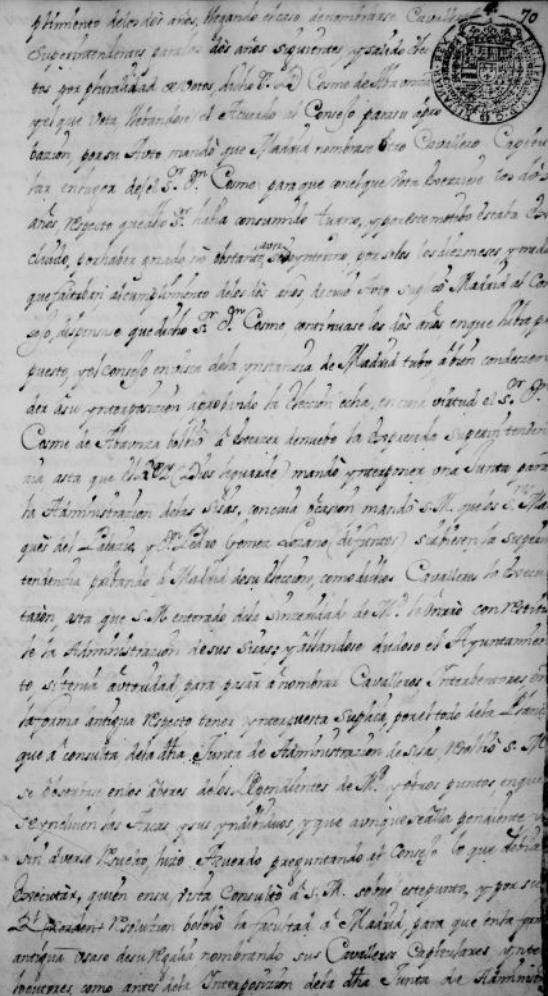 plimento delos dós años, llegando el caso denombrarse Cavalleros
Superintendentes paralos dós años siguientes, y salido elec
tos por pluralidad de votos, dicho Sr. Dn Cosme de Abaunza
y el que vota, llebandose el Acuerdo al Consejo para su apro
bazion, por su Auto mandò que Madrid nombrase otro Cavallero Capitu
lar en lugar del Sr. Dn. Cosme para que con el que Vota exerciese los dós
años, respecto que dho Sr. havia consumido turno, y por este motibo estaba Ex
cluido, por haber gozado no obstante, por solos los diezmeses, y medio
que faltaban al cumplimento delos dós años, de cuio Auto suplicó Madrid al Con
sejo, dispensase que dicho Sr. Dn. Cosme, continuase los dós años, en que hubo pro
puesto, y el Consejo en vista dela ynstanzia de Madrid tubo à bien condescen
der a su ynterposizion aprobando la Eleccion echa, en cuia virtud el Sr. Dn.
Cosme de Abaunza bolbió à exercer denuebo la Expresada Superintenden
zia asta que el Rey (Dios leguarde) mandò ynterponer una Junta para
la Administrazion delas Sisas, con cuia ocasion mandò S.M. que los Sres. Mar
qués del Palacio, y Dn. Pedro Gomez Lozano (difuntos) subiesen la Superin
tendencia pribando à Madrid desu Eleccion, como dichos Cavalleros lo Execu
taron, asta que S.M. enterado dela sinceridad de Md.
le la Administrazion de sus Sisas; y allandose dudoso el Ayuntamien
to, si tenia autoridad para pasar à nombrar Cavalleros Interbentores, en
la forma antigua respecto tener ynterpuesta Suplica, por el todo dela
que à consulta dela dha Junta de Administrazion de Sisas, resolbió S. M.
se obserbase en los áberes delos Dependientes de Md. y otros puntos en que
se yncluien las Arcas, y sus yndibiduos, y que aunque se alla pendiente, y
sin averse resuelto, hizo Acuerdo preguntando al Consejo lo que debia
Executar, quien en su vista Consultò à S. M. sobre este punto, y por su
Rl. resoluzion bolbió la facultad à Madrid, para que en la forma
antigua usase de su regalia nombrando sus Cavalleros Capitulares ynter
bentores, como antes dela Interposizion dela dha Junta de Administra
70